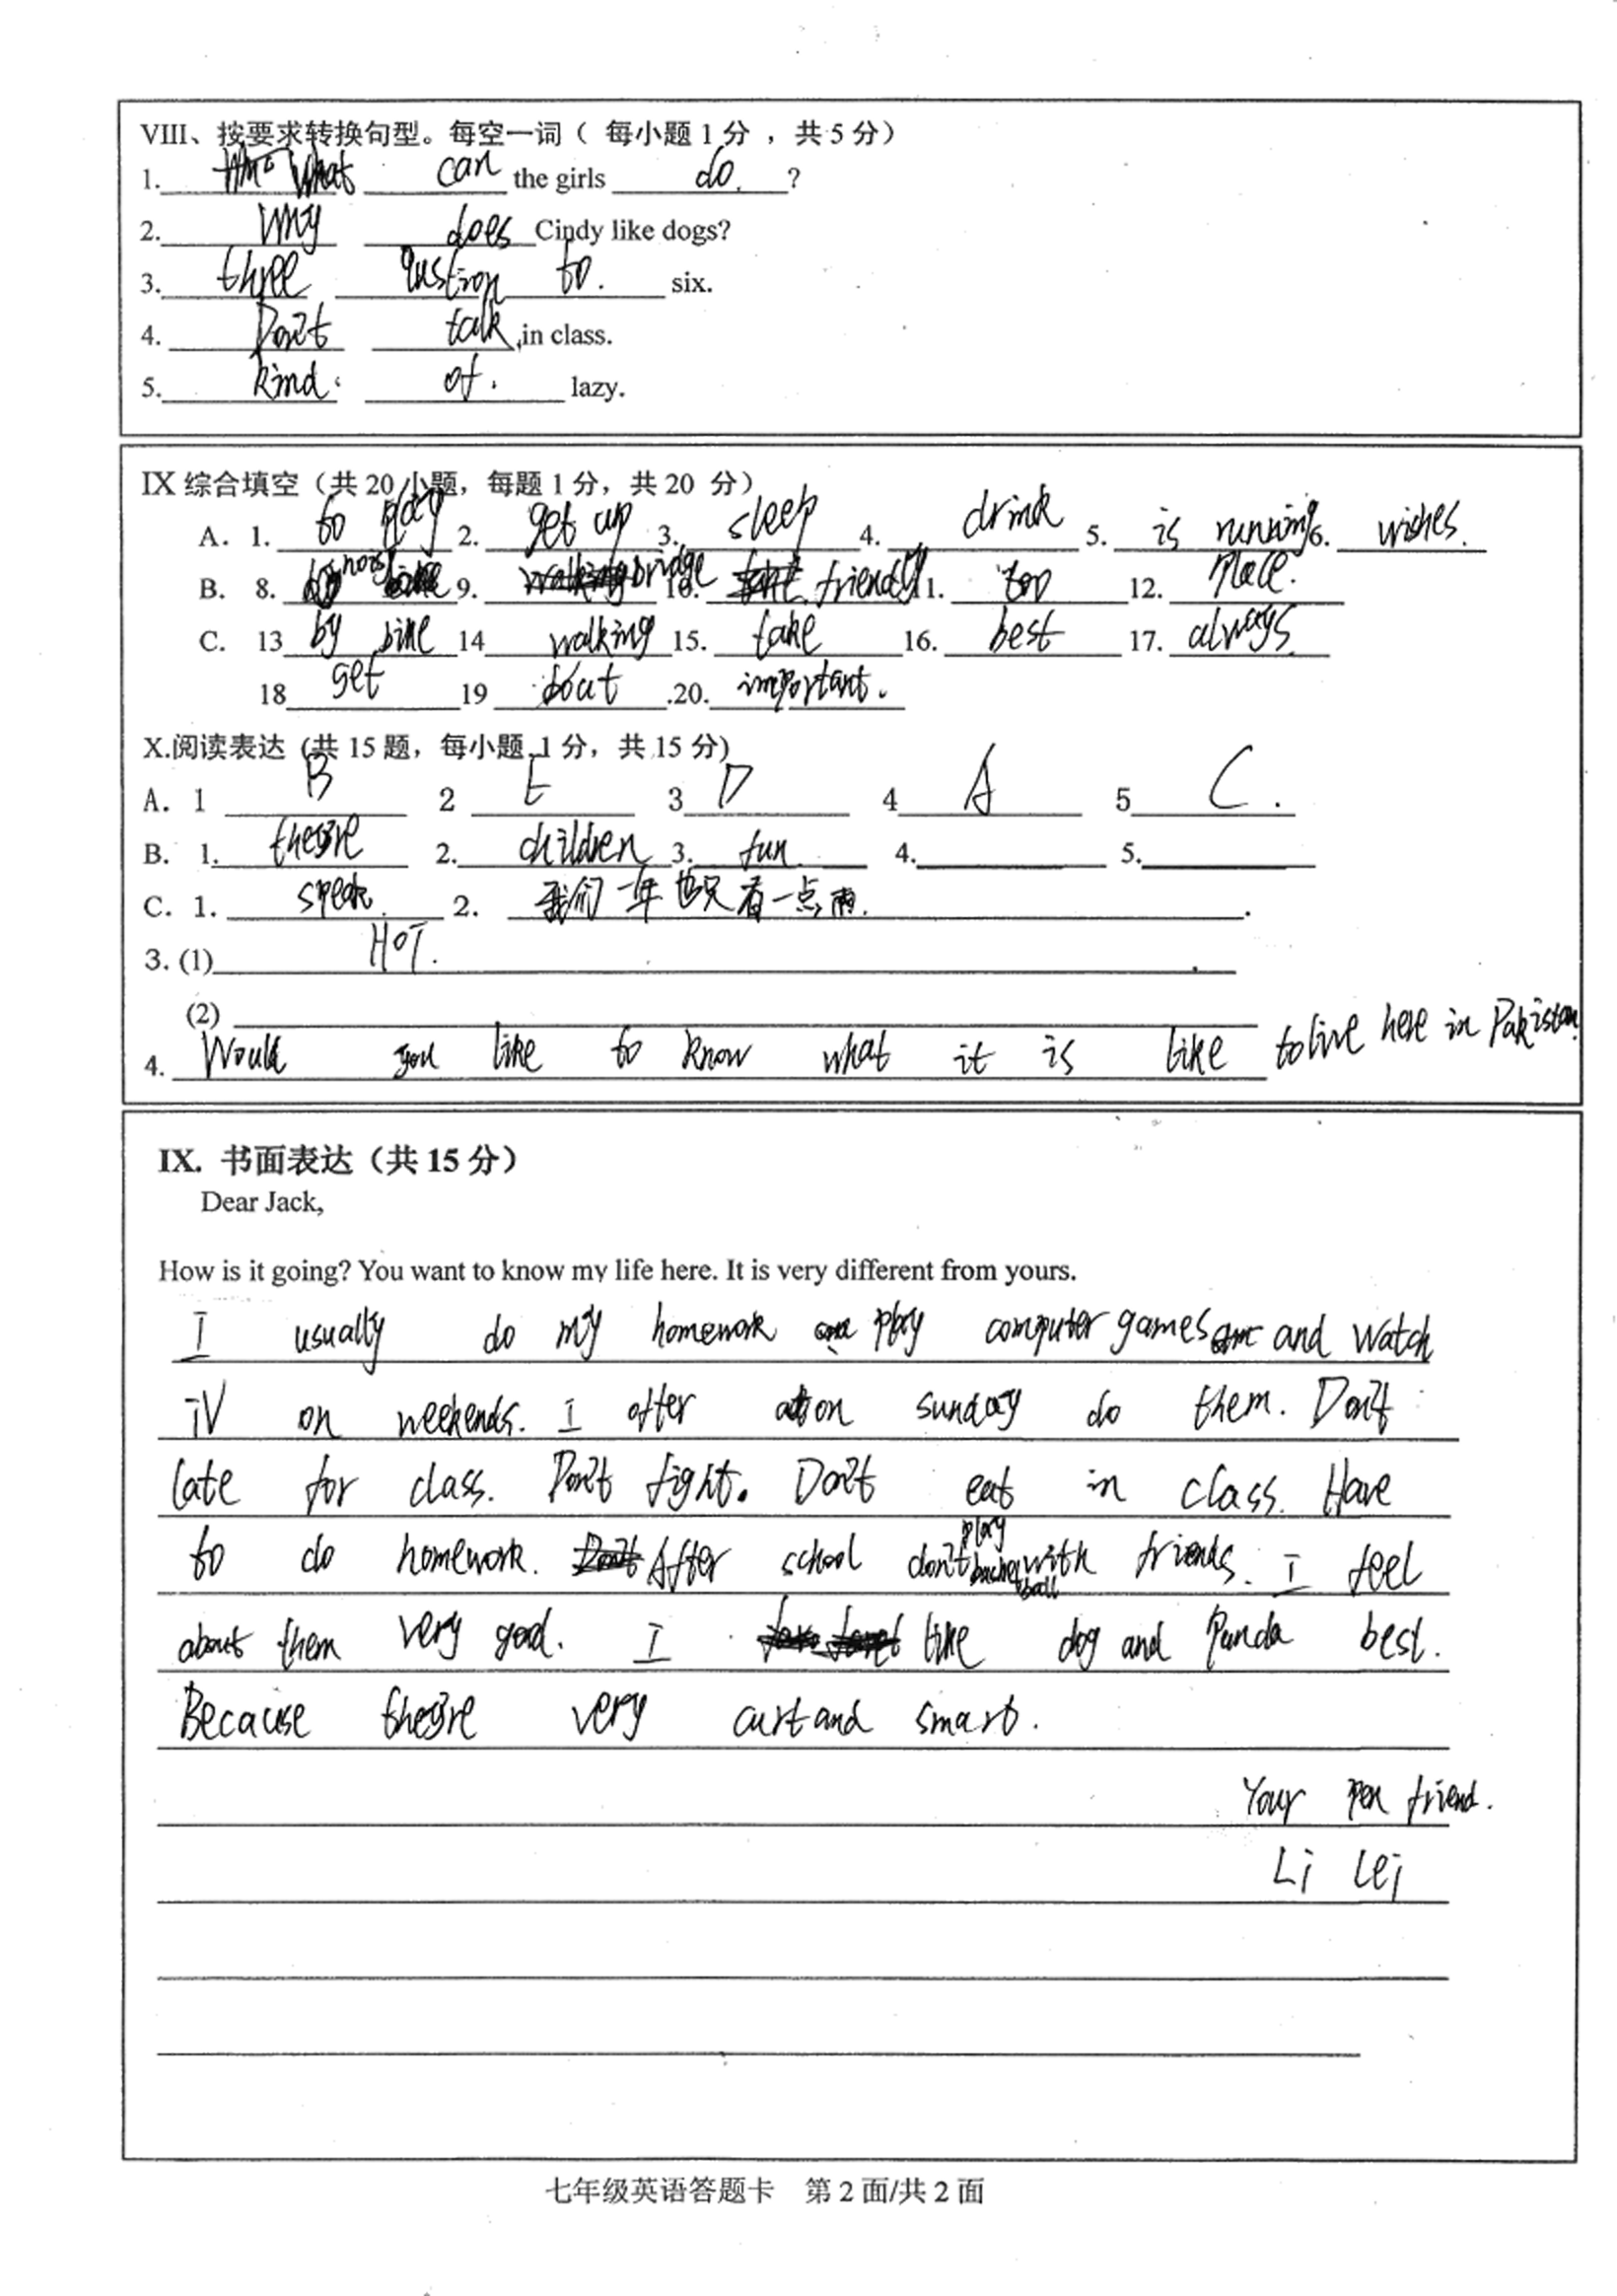 VIII、按要求转换句型。每空一词( 每小题1分 ,共5分)
1. What can the girls do. ?
2. Why does Cindy like dogs?
3. three qustion to. six.
4. Don't talk in class.
5. kind of. lazy.
IX 综合填空(共20小题,每题1分,共20 分)
A. 1. to play 2. get up 3. sleep 4. drink 5. is running 6. wishes.
B. 8. 9. bridge 10. friendly 11. too 12. place.
C. 13 by bike 14 walking 15. take 16. best 17. always.
18 get 19 bout .20. important.
X.阅读表达(共15题,每小题1分,共15分)
A. 1 B 2 E 3 D 4 A 5 C.
B. 1. they're 2. children 3. fun 4. 5.
C. 1. speak. 2. 我们一年也只有一点雨.
3. (1) HOT.
(2)
4. Would you like to know what it is like to live here in Pakistan.
IX. 书面表达(共15分)
Dear Jack,
How is it going? You want to know my life here. It is very different from yours.
I usually do my homework play computer games and watch
TV on weekends. I after on sunday do them. Don't
late for class. Don't fight. Don't eat in class. Have
to do homework. After school don't play with friends. I feel
about them very good. I like dog and Panda best.
Because they're very curt and smart.
Your pen friend.
Li Lei
七年级英语答题卡 第2面/共2面